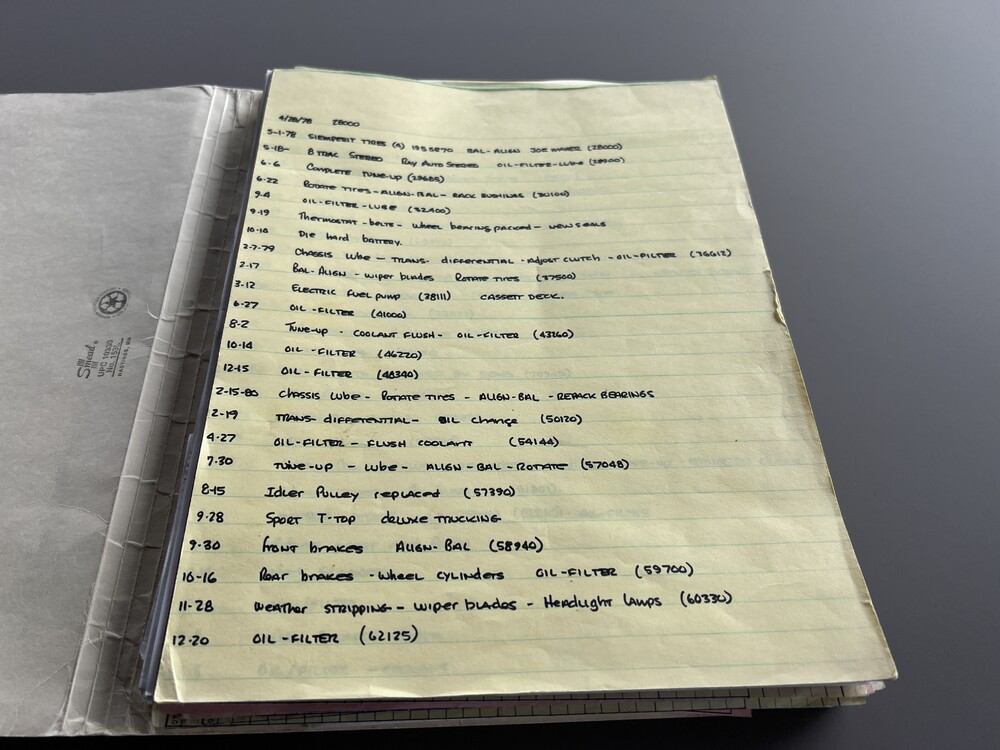 4/28/78 28000
5-1-78 SIEMPERIT TIRES (4) 195 5R70 BAL-ALIGN JOE (28000)
5-18- 8 TRAC STEREO RAY AUTO STEREO OIL-FILTER-LUBE (28900)
6-6 COMPLETE TUNE-UP (29685)
6-22 ROTATE TIRES-ALIGN-BAL- RACK BUSHINGS (30100)
9-4 OIL-FILTER-LUBE (32400)
9-19 Thermostat-belts- wheel bearing packed- new seals
10-10 Die hard battery.
2-7-79 Chassis lube- TRANS. differential -Adjust clutch -OIL-FILTER (36612)
2-17 BAL-ALIGN - wiper blades ROTATE TIRES (37500)
3-12 Electric fuel pump (38111) CASSETT DECK.
6-27 OIL-FILTER (41000)
8-2 TUNE-UP - COOLANT FLUSH- OIL-FILTER (43260)
10-14 OIL-FILTER (46220)
12-15 OIL-FILTER (48340)
2-15-80 CHASSIS LUBE- ROTATE TIRES - ALIGN-BAL -REPACK BEARINGS
2-19 TRANS- differential- OIL change (50120)
4-27 OIL-FILTER- FLUSH COOLANT (54144)
7-30 TUNE-UP - Lube- ALIGN-BAL-ROTATE (57048)
8-15 Idler Pulley replaced (57390)
9-28 SPORT T-TOP deluxe trucking
9-30 front brakes ALIGN-BAL (58940)
10-16 Rear brakes -wheel cylinders OIL-FILTER (59700)
11-28 weather stripping- wiper blades- Headlight lamps (60330)
12-20 OIL-FILTER (62125)
Smead®
UPC 10330
HASTINGS, MN